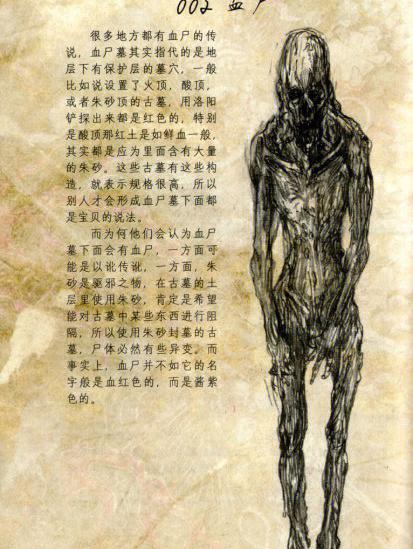 002 血尸
很多地方都有血尸的传
说，血尸墓其实指代的是地
层下有保护层的墓穴，一般
比如说设置了火顶，酸顶，
或者朱砂顶的古墓，用洛阳
铲探出来都是红色的，特别
是酸顶那红土是如鲜血一般，
其实都是应为里面含有大量
的朱砂。这些古墓有这些构
造，就表示规格很高，所以
别人才会形成血尸墓下面都
是宝贝的说法。
而为何他们会认为血尸
墓下面会有血尸，一方面可
能是以讹传讹，一方面，朱
砂是驱邪之物，在古墓的土
层里使用朱砂，肯定是希望
能对古墓中某些东西进行阻
隔，所以使用朱砂封墓的古
墓，尸体必然有些异变。而
事实上，血尸并不如它的名
字般是血红色的，而是酱紫
色的。